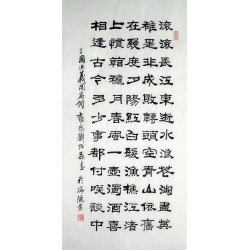 滾滾長江東逝水浪花淘盡英
雄是非成敗轉頭空青山依舊
在幾度夕陽紅白髮漁樵江渚
上慣看秋月春風一壺濁酒喜
相逢古今多少事都付咲談中
三國演義開篇詞